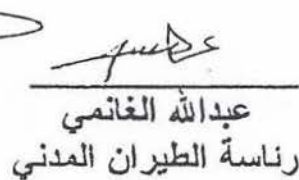 عبدالله الغانمي
رئاسة الطيران المدني